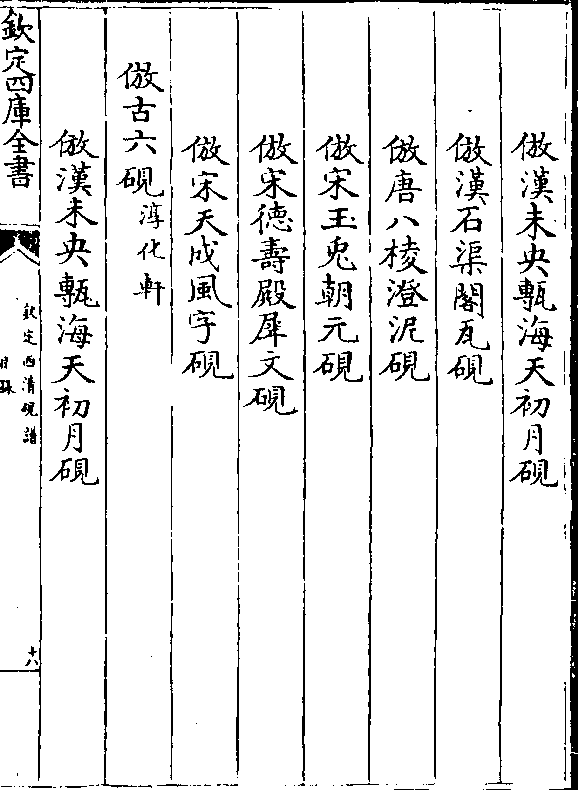 倣漢未央甎海天初月硯
倣漢石渠閣瓦硯
倣唐八棱澄泥硯
倣宋玉兎朝元硯
倣宋德壽殿犀文硯
倣宋天成風字硯
倣古六硯淳化軒
倣漢未央甎海天初月硯
欽定四庫全書
欽定西清硯譜
目録
十八